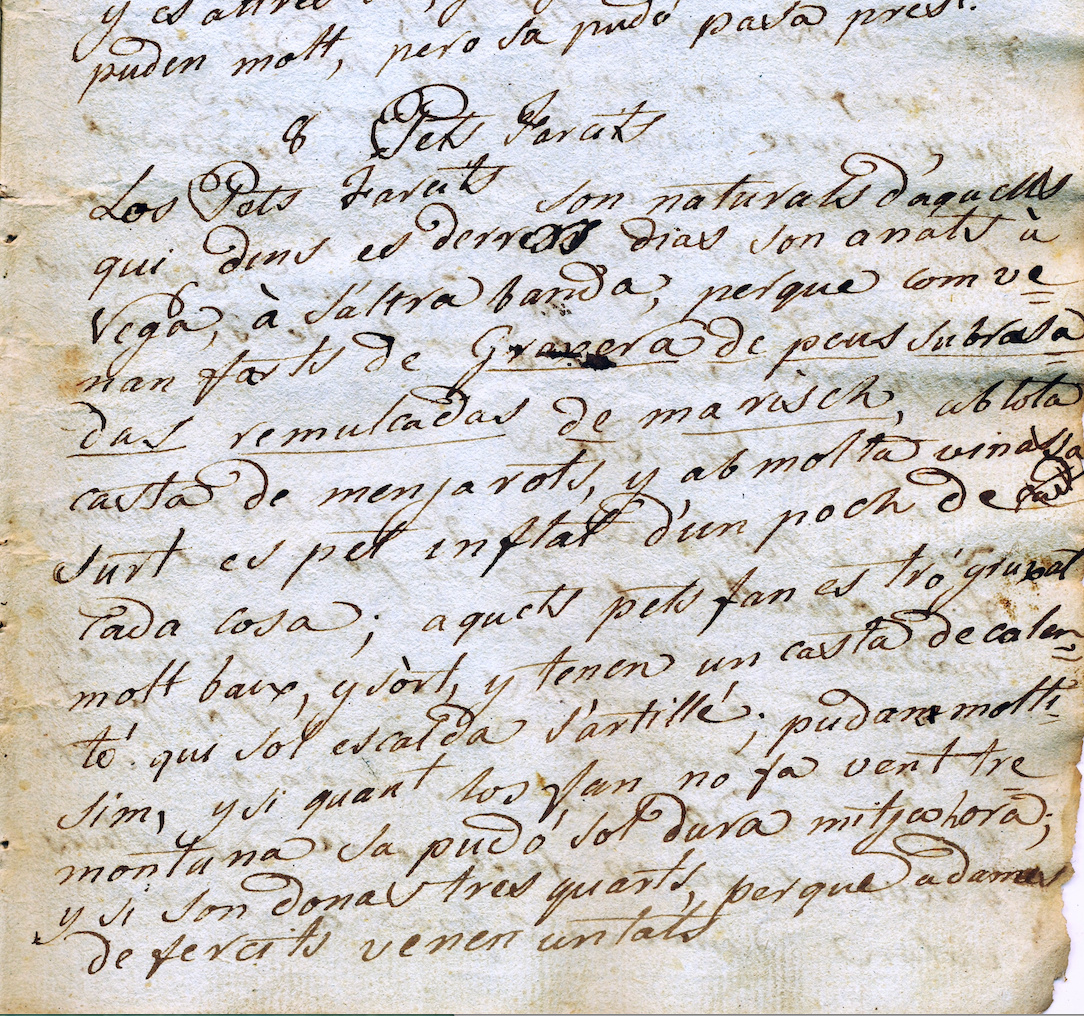 y es altres
puden molt, pero sa pudó pasa prest.
8 Pets Farcits
Los Pets Farcits son naturals d'aquells
qui dins es derrers dias son anats à
Vega, à s'altra banda, perque com ve=
nan farts de Granera de peus subrasa
das remulcadas de marisch, ab tota
casta de menjarots, y ab molta vinassa
surt es pet inflat d'un poch de
cada cosa; aquets pets fan es tró gruxat
molt baix, y sòrt, y tenen un casta de calen=
té qui sol escalda s'artillé; pudan molti-
sim, y si quant los fan no fa vent tre
montana sa pudó sol dura mitja hora;
y si son donas tres quarts, perque ademes
de fercits venen untats